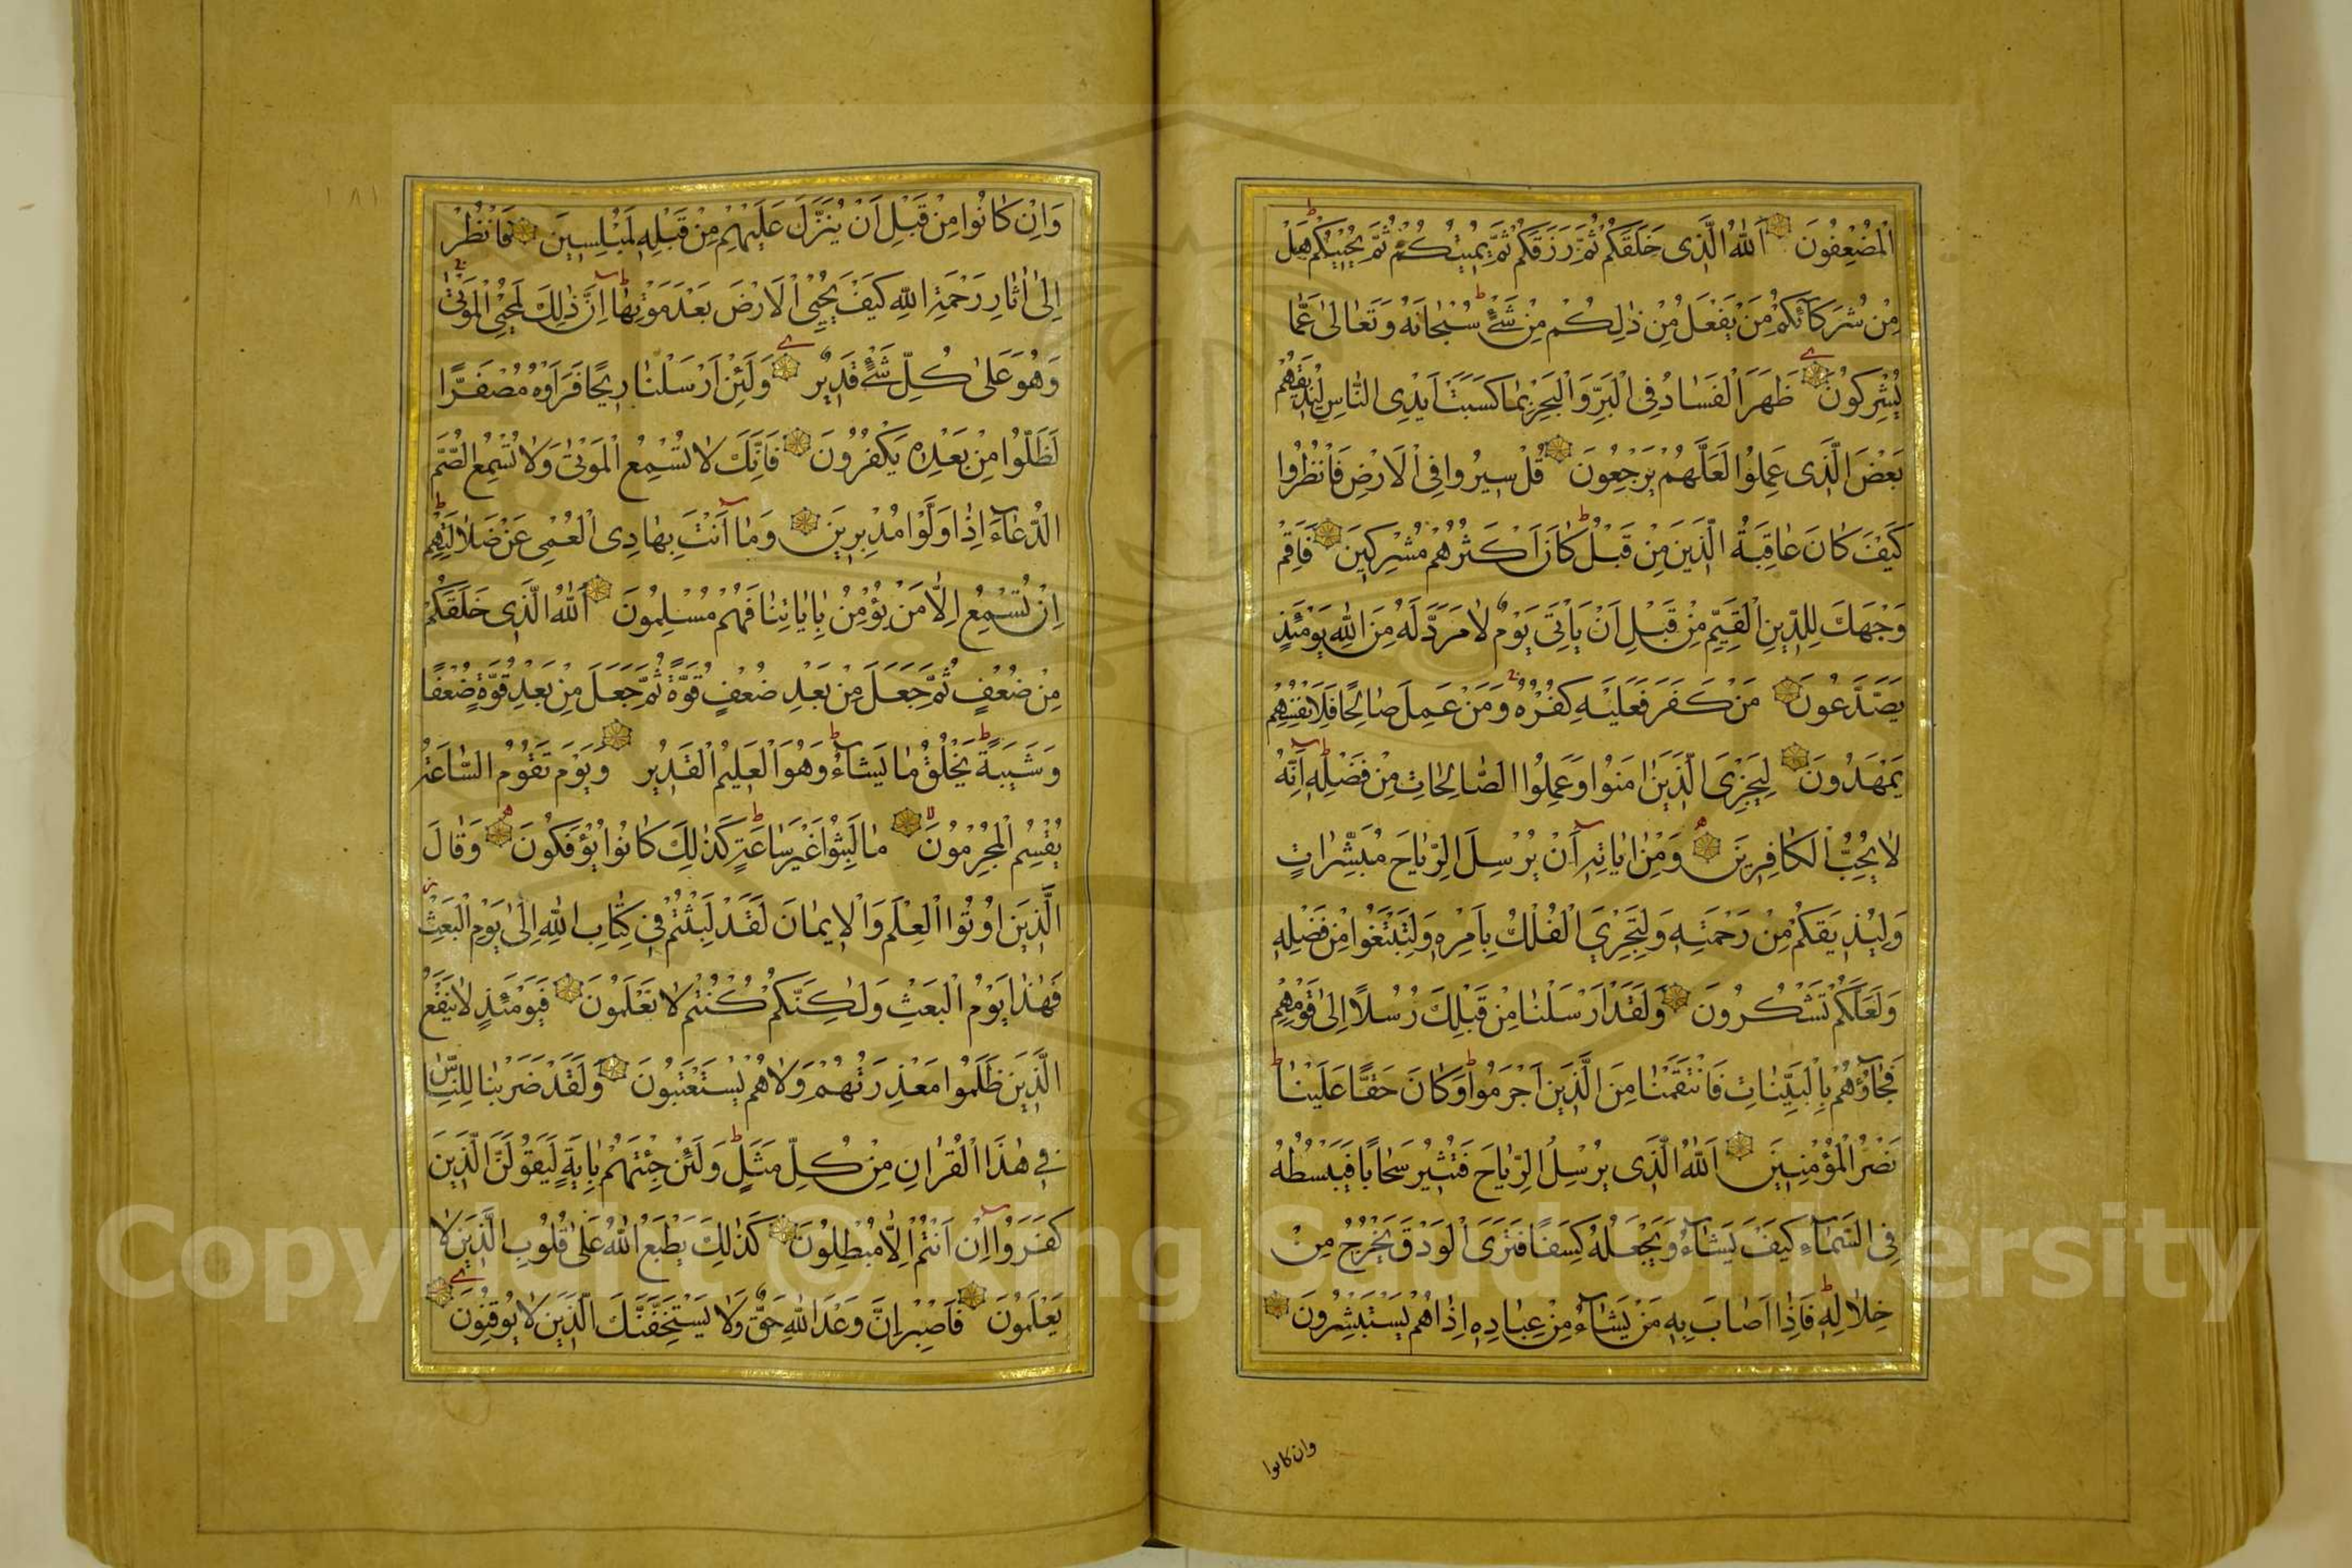 الْمُضْعِفُونَ اَللّٰهُ الَّذِى خَلَقَكُمْ ثُمَّ رَزَقَكُمْ ثُمَّ يُمِيتُكُمْ ثُمَّ يُحْيِيكُمْ هَلْ
مِنْ شُرَكَآئِكُمْ مَنْ يَفْعَلُ مِنْ ذٰلِكُمْ مِنْ شَىْءٍ سُبْحَانَهُ وَتَعَالىٰ عَمَّا
يُشْرِكُونَ ظَهَرَ الْفَسَادُ فِى الْبَرِّ وَالْبَحْرِ بِمَا كَسَبَتْ اَيْدِى النَّاسِ لِيُذِيقَهُمْ
بَعْضَ الَّذِى عَمِلُوا لَعَلَّهُمْ يَرْجِعُونَ قُلْ سِيرُوا فِى الْاَرْضِ فَانْظُرُوا
كَيْفَ كَانَ عَاقِبَةُ الَّذِينَ مِنْ قَبْلُ كَانَ اَكْثَرُهُمْ مُشْرِكِينَ فَاَقِمْ
وَجْهَكَ لِلدِّينِ الْقَيِّمِ مِنْ قَبْلِ اَنْ يَاْتِىَ يَوْمٌ لَا مَرَدَّ لَهُ مِنَ اللّٰهِ يَوْمَئِذٍ
يَصَّدَّعُونَ مَنْ كَفَرَ فَعَلَيْهِ كُفْرُهُ وَمَنْ عَمِلَ صَالِحًا فَلِاَنْفُسِهِمْ
يَمْهَدُونَ لِيَجْزِىَ الَّذِينَ اٰمَنُوا وَعَمِلُوا الصَّالِحَاتِ مِنْ فَضْلِهِ اِنَّهُ
لَا يُحِبُّ الْكَافِرِينَ وَمِنْ اٰيَاتِهِ اَنْ يُرْسِلَ الرِّيَاحَ مُبَشِّرَاتٍ
وَلِيُذِيقَكُمْ مِنْ رَحْمَتِهِ وَلِتَجْرِىَ الْفُلْكُ بِاَمْرِهِ وَلِتَبْتَغُوا مِنْ فَضْلِهِ
وَلَعَلَّكُمْ تَشْكُرُونَ وَلَقَدْ اَرْسَلْنَا مِنْ قَبْلِكَ رُسُلًا اِلىٰ قَوْمِهِمْ
فَجَآؤُهُمْ بِالْبَيِّنَاتِ فَانْتَقَمْنَا مِنَ الَّذِينَ اَجْرَمُوا وَكَانَ حَقًّا عَلَيْنَا
نَصْرُ الْمُؤْمِنِينَ اَللّٰهُ الَّذِى يُرْسِلُ الرِّيَاحَ فَتُثِيرُ سَحَابًا فَيَبْسُطُهُ
فِى السَّمَآءِ كَيْفَ يَشَآءُ وَيَجْعَلُهُ كِسَفًا فَتَرَى الْوَدْقَ يَخْرُجُ مِنْ
خِلَالِهِ فَاِذَا اَصَابَ بِهِ مَنْ يَشَآءُ مِنْ عِبَادِهِ اِذَا هُمْ يَسْتَبْشِرُونَ
وان كانوا
١٨١
وَاِنْ كَانُوا مِنْ قَبْلِ اَنْ يُنَزَّلَ عَلَيْهِمْ مِنْ قَبْلِهِ لَمُبْلِسِينَ فَانْظُرْ
اِلىٰ اٰثَارِ رَحْمَتِ اللّٰهِ كَيْفَ يُحْيِى الْاَرْضَ بَعْدَ مَوْتِهَا اِنَّ ذٰلِكَ لَمُحْيِى الْمَوْتىٰ
وَهُوَ عَلىٰ كُلِّ شَىْءٍ قَدِيرٌ وَلَئِنْ اَرْسَلْنَا رِيحًا فَرَاَوْهُ مُصْفَرًّا
لَظَلُّوا مِنْ بَعْدِهِ يَكْفُرُونَ فَاِنَّكَ لَا تُسْمِعُ الْمَوْتىٰ وَلَا تُسْمِعُ الصُّمَّ
الدُّعَآءَ اِذَا وَلَّوْا مُدْبِرِينَ وَمَا اَنْتَ بِهَادِى الْعُمْىِ عَنْ ضَلَالَتِهِمْ
اِنْ تُسْمِعُ اِلَّا مَنْ يُؤْمِنُ بِاٰيَاتِنَا فَهُمْ مُسْلِمُونَ اَللّٰهُ الَّذِى خَلَقَكُمْ
مِنْ ضُعْفٍ ثُمَّ جَعَلَ مِنْ بَعْدِ ضُعْفٍ قُوَّةً ثُمَّ جَعَلَ مِنْ بَعْدِ قُوَّةٍ ضُعْفًا
وَشَيْبَةً يَخْلُقُ مَا يَشَآءُ وَهُوَ الْعَلِيمُ الْقَدِيرُ وَيَوْمَ تَقُومُ السَّاعَةُ
يُقْسِمُ الْمُجْرِمُونَ مَا لَبِثُوا غَيْرَ سَاعَةٍ كَذٰلِكَ كَانُوا يُؤْفَكُونَ وَقَالَ
الَّذِينَ اُوتُوا الْعِلْمَ وَالْاِيمَانَ لَقَدْ لَبِثْتُمْ فِى كِتَابِ اللّٰهِ اِلىٰ يَوْمِ الْبَعْثِ
فَهٰذَا يَوْمُ الْبَعْثِ وَلٰكِنَّكُمْ كُنْتُمْ لَا تَعْلَمُونَ فَيَوْمَئِذٍ لَا يَنْفَعُ
الَّذِينَ ظَلَمُوا مَعْذِرَتُهُمْ وَلَا هُمْ يُسْتَعْتَبُونَ وَلَقَدْ ضَرَبْنَا لِلنَّاسِ
فِى هٰذَا الْقُرْاٰنِ مِنْ كُلِّ مَثَلٍ وَلَئِنْ جِئْتَهُمْ بِاٰيَةٍ لَيَقُولَنَّ الَّذِينَ
كَفَرُوا اِنْ اَنْتُمْ اِلَّا مُبْطِلُونَ كَذٰلِكَ يَطْبَعُ اللّٰهُ عَلىٰ قُلُوبِ الَّذِينَ لَا
يَعْلَمُونَ فَاصْبِرْ اِنَّ وَعْدَ اللّٰهِ حَقٌّ وَلَا يَسْتَخِفَّنَّكَ الَّذِينَ لَا يُوقِنُونَ
Copyright © King Saud University
1957